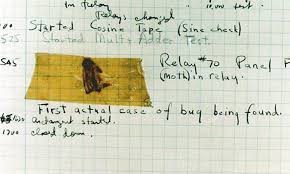 in relay
Relays changed
Started Cosine Tape (Sine check)
1525 Started Mult+Adder Test.
1545 Relay #70 Panel F
(moth) in relay.
First actual case of bug being found.
antangent started.
1700 closed down.